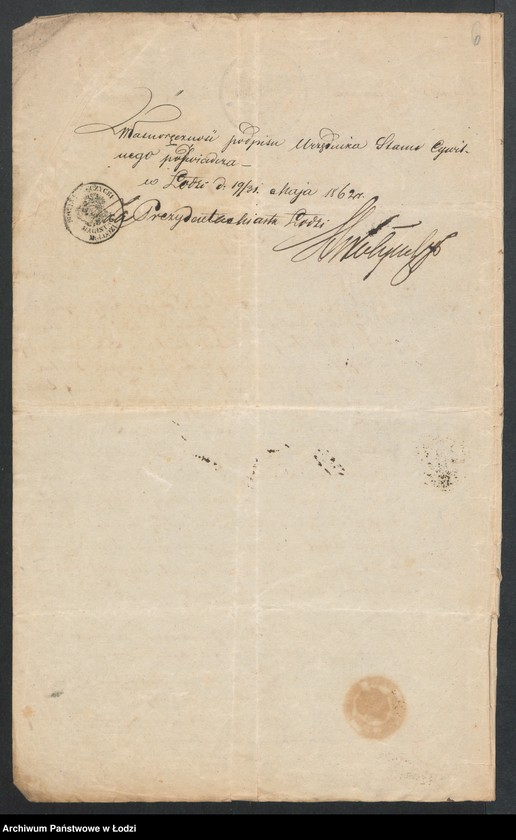 6
Własnoręczność podpisu Urzędnika Stanu Cywil-
nego poświadcza_
w Łodzi d. 19/31 Maja 1862 r.
Prezydent Miasta Łodzi
MAGIST
M. ŁODZI
Archiwum Państwowe w Łodzi